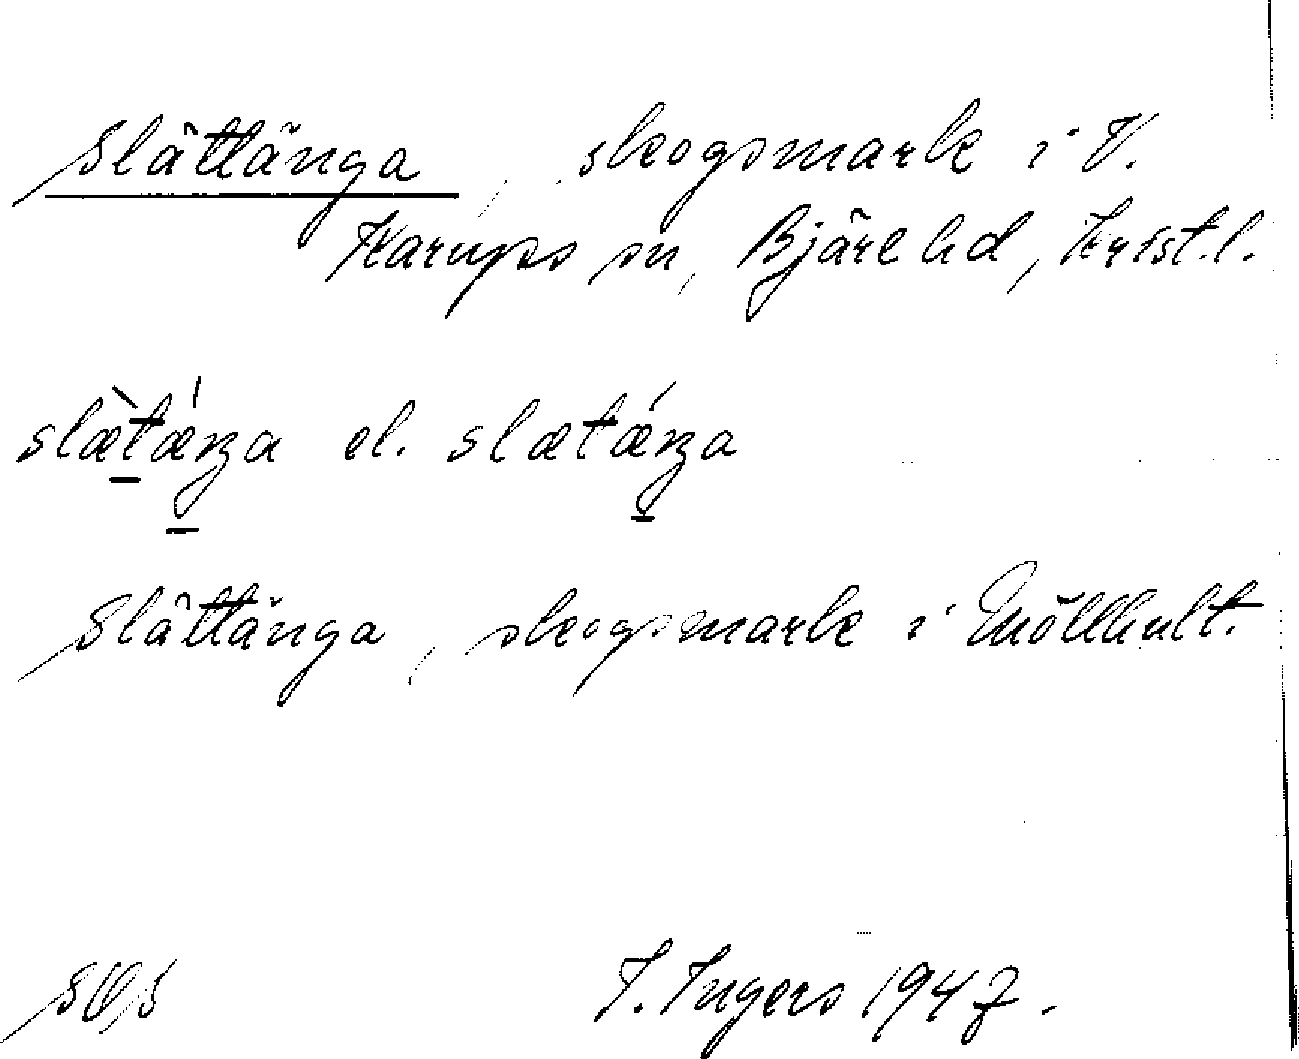 Slättänga, skogsmark i V.
Karups sn, Bjäre hd, Krist.l.
slæ̀tǽŋa el. slætǽŋa
Slättänga, skogsmark i Möllhult.
I. Ingers 1947.